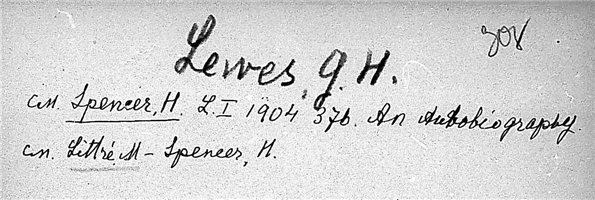 308
Lewes, G. H.
см. Spencer, H. L. I 1904 376. An Autobiography.
см. Littré, M – Spencer, H.